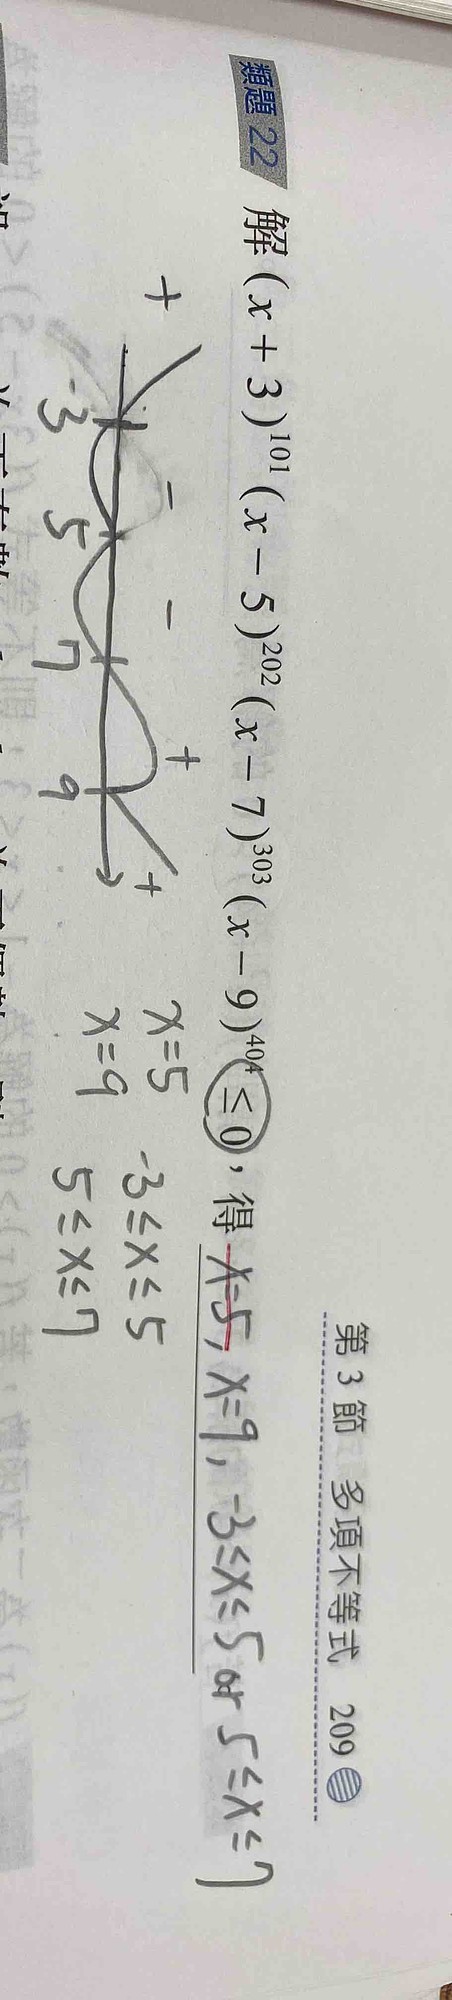 第 3 節　多項不等式　209
類題 22　解 (x + 3)¹⁰¹(x − 5)²⁰²(x − 7)³⁰³(x − 9)⁴⁰⁴ ≤ 0，得 x=5, x=9, -3≤x≤5 or 5≤x≤7
+ − − + +
-3 5 7 9
x=5 -3≤x≤5
x=9 5≤x≤7